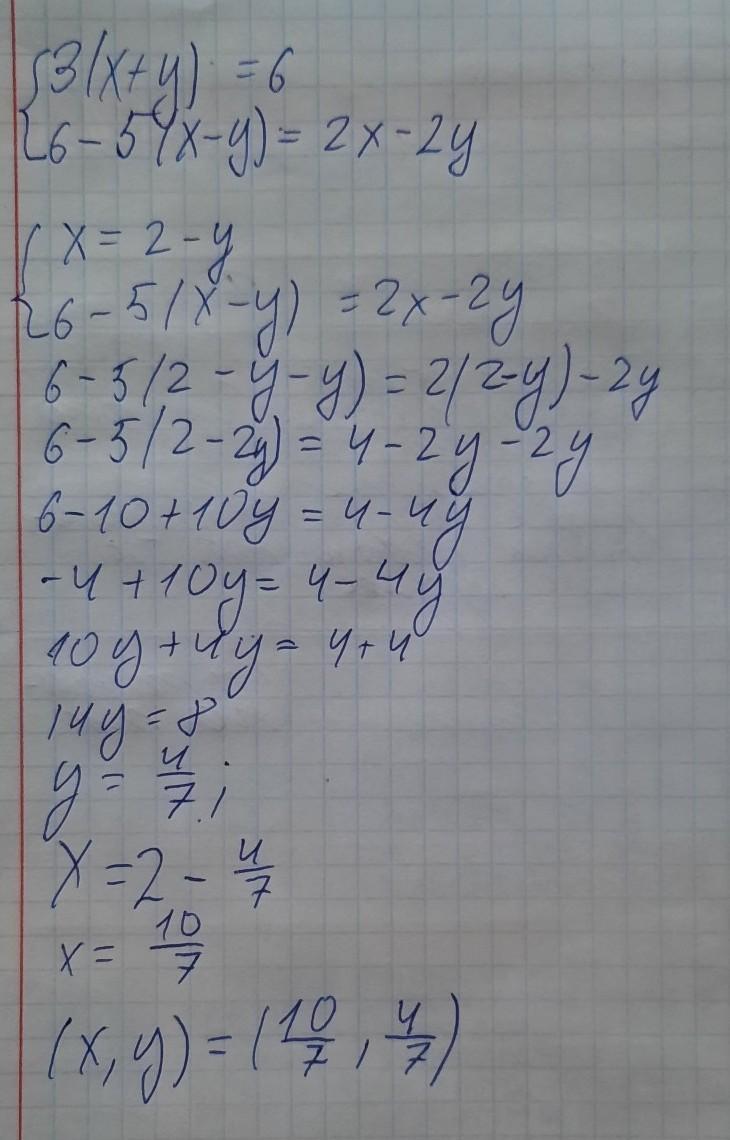 {3(x+y) = 6
{6-5(x-y) = 2x-2y
{x = 2-y
{6-5(x-y) = 2x-2y
6-5(2-y-y) = 2(2-y)-2y
6-5(2-2y) = 4-2y-2y
6-10+10y = 4-4y
-4+10y = 4-4y
10y+4y = 4+4
14y = 8
y = 4/7;
x = 2 - 4/7
x = 10/7
(x,y) = (10/7, 4/7)